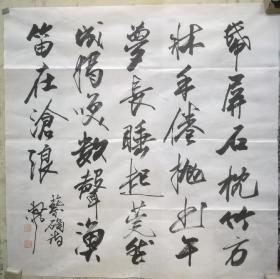 纸屏石枕竹方
床手倦抛书午
梦长睡起莞然
成独笑数声渔
笛在沧浪
蔡确诗